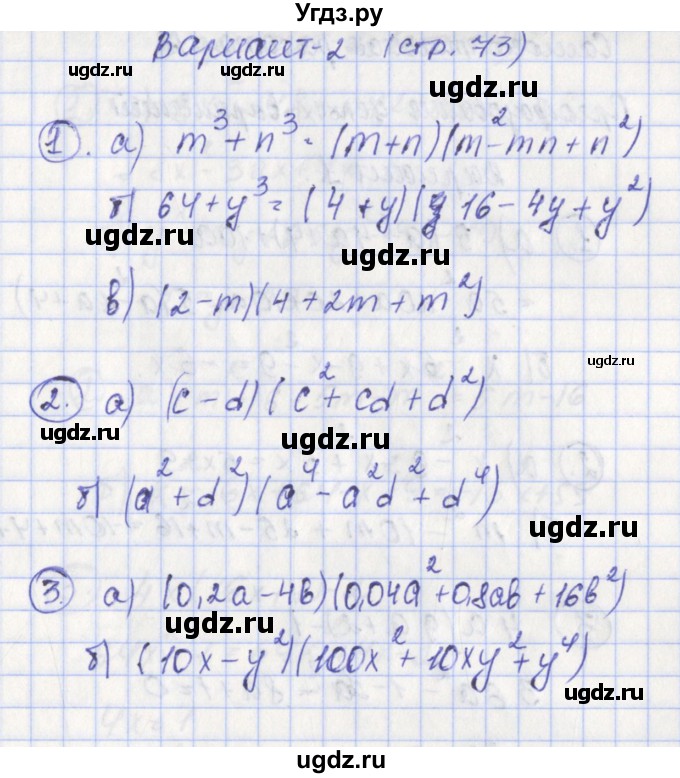 Угдз.ру
Вариант-2 (стр. 73)
ugdz.ru ugdz.ru
ugdz.ru
1. а) m³ + n³ = (m+n)(m² - mn + n²)
ugdz.ru
б) 64 + y³ = (4 + y)(16 - 4y + y²)
ugdz.ru ugdz.ru
в) (2 - m)(4 + 2m + m²)
ugdz.ru
2. а) (c - d)(c² + cd + d²)
ugdz.ru ugdz.ru
б) (a² + d²)(a⁴ - a²d² + d⁴)
ugdz.ru
3. а) (0,2a - 4b)(0,04a² + 0,8ab + 16b²)
ugdz.ru ugdz.ru
б) (10x - y²)(100x² + 10xy² + y⁴)
ugdz.ru
ugdz.ru